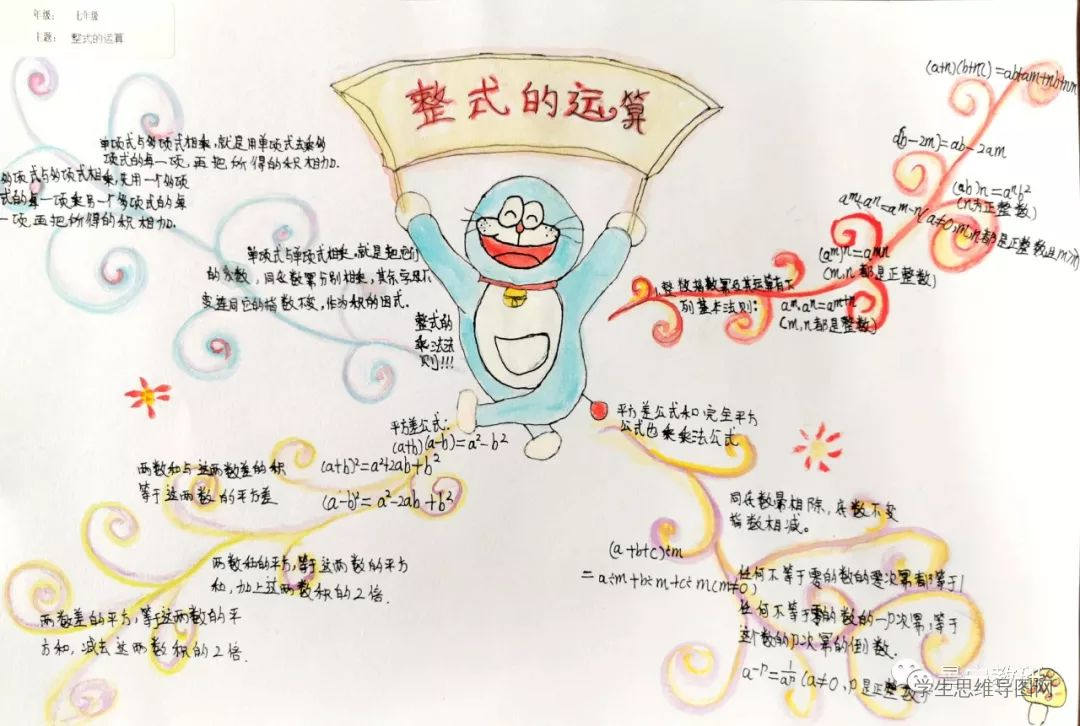 年级： 七年级
主题： 整式的运算
整式的运算
单项式与多项式相乘，就是用单项式去乘多
项式的每一项，再把所得的积相加.
多项式与多项式相乘，先用一个多项
式的每一项乘另一个多项式的每
一项，再把所得的积相加.
单项式与单项式相乘，就是把它们
的系数，同底数幂分别相乘，其余字母不
变连同它的指数不变，作为积的因式.
整式的
乘法法
则!!!
(a+n)(b+m)=ab+am+nb+nm
a(b-2m)=ab-2am
(ab)n=aⁿb²
(n为正整数)
aᵐ÷aⁿ=aᵐ-n(a≠0,m,n都是正整数且m>n)
(aᵐ)n=aᵐⁿ
(m,n都是正整数)
整数指数幂及其运算有下
列基本法则：
aᵐ.aⁿ=aᵐ⁺ⁿ
(m,n都是整数)
平方差公式：
(a+b)(a-b)=a²-b²
两数和与这两数差的积
等于这两数的平方差
(a+b)²=a²+2ab+b²
(a-b)²=a²-2ab+b²
两数和的平方，等于这两数的平方
和，加上这两数积的2倍.
两数差的平方，等于这两数的平
方和，减去这两数积的2倍.
平方差公式和完全平方
公式也乘乘法公式
同底数幂相除，底数不变
指数相减。
(a+b+c)÷m
=a÷m+b÷m+c÷m(m≠0)
任何不等于零的数的零次幂都等于1
任何不等于零的数的-p次幂，等于
这个数的p次幂的倒数.
a⁻ᵖ=1/aᵖ(a≠0，p是正整数)
学生思维导图网